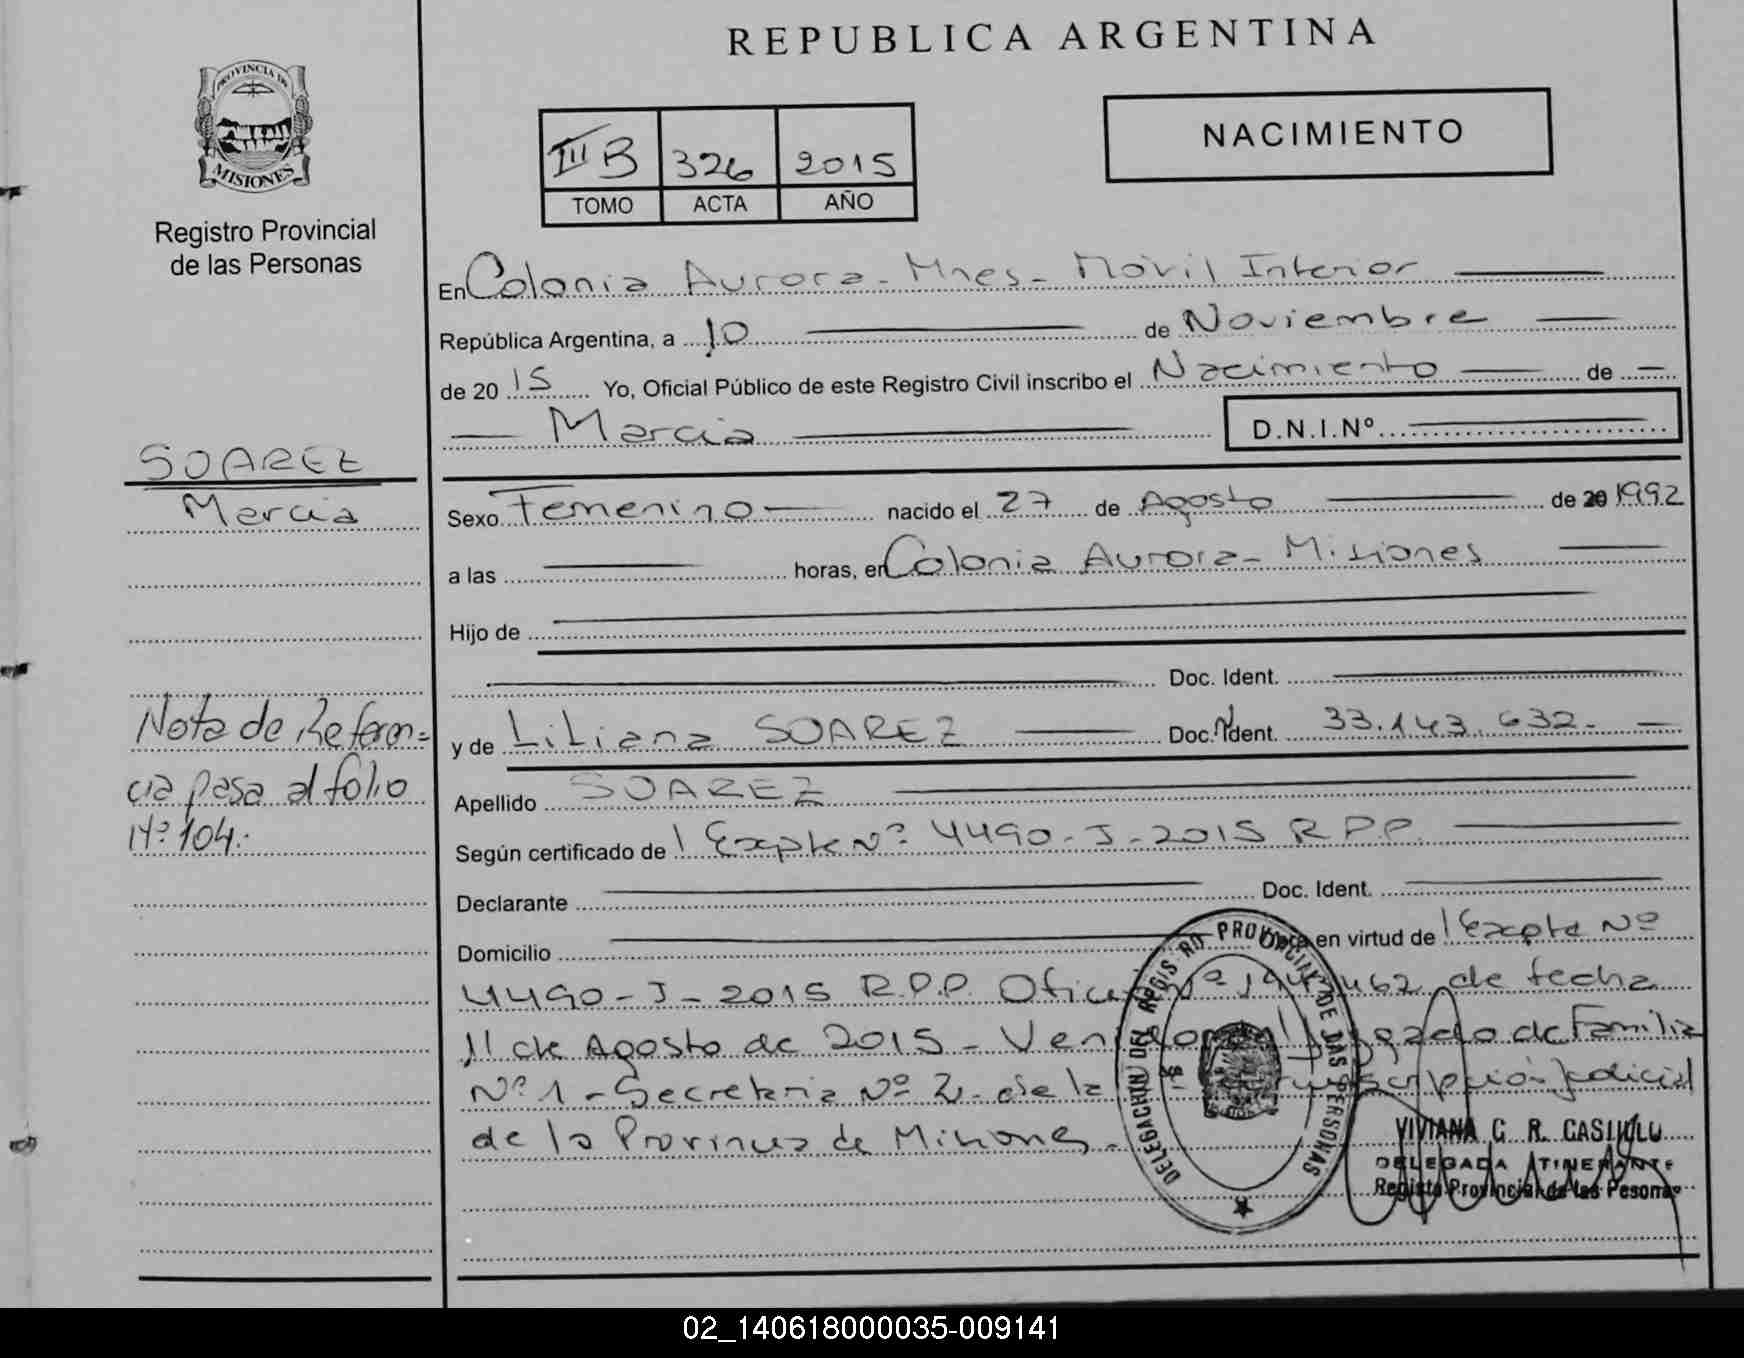 REPUBLICA ARGENTINA
PROVINCIA DE
MISIONES
Registro Provincial
de las Personas
III B 326 2015
TOMO ACTA AÑO
NACIMIENTO
En Colonia Aurora - Mnes - Móvil Interior
República Argentina, a 10 de Noviembre
de 20 15 Yo, Oficial Público de este Registro Civil inscribo el Nacimiento de
Marcia D.N.I.Nº
SOAREZ
Marcia
Sexo Femenino nacido el 27 de Agosto de 20 1992
a las horas, en Colonia Aurora - Misiones
Hijo de
Doc. Ident.
Nota de Referen=
cia pasa al folio
Nº 104.
y de Liliana SOAREZ Doc. Ident. 33.143.632.
Apellido SOAREZ
Según certificado de Expte Nº 4490-J-2015 R.P.P.
Declarante Doc. Ident.
Domicilio en virtud de Expte Nº
4490-J-2015 R.P.P. de fecha
11 de Agosto de 2015 - de Familia
Nº 1 - Secretaria Nº 2 de la Judicial
de la Provincia de Misiones.
DELEGACION DEL REGISTRO PROVINCIAL DE LAS PERSONAS
VIVIANA G. R.
DELEGADA ITINERANTE
Registro Provincial de las Pesonas
02_140618000035-009141